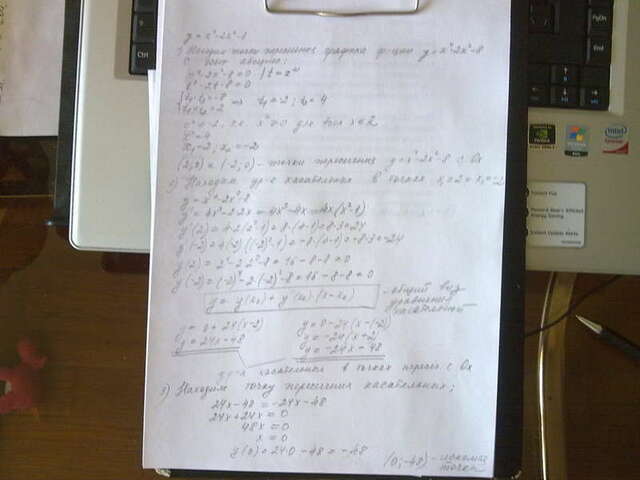 y = x⁴-2x²-8
1) Находим точки пересечения графика ф-ции y = x⁴-2x²-8
с осью абсцисс:
x⁴-2x²-8=0 | t=x²
t²-2t-8=0
t₁t₂=-8
t₁+t₂=2 => t₁=-2; t₂=4
x²≠-2, т.к. x²≥0 для
x²=4
x₁=2; x₂=-2
(2;0) и (-2;0) - точки пересечения y=x⁴-2x²-8 с Ox
2) Находим ур-я касательных в точках x₁=2 и x₂=-2
y = x⁴-2x²-8
y' = 4x³-2·2x = 4x³-4x = 4x(x²-1)
y'(2) = 4·2(2²-1) = 8·(4-1) = 8·3 = 24
y'(-2) = 4·(-2)·((-2)²-1) = -8·(4-1) = -8·3 = -24
y(2) = 2⁴-2·2²-8 = 16-8-8 = 0
y(-2) = (-2)⁴-2·(-2)²-8 = 16-8-8 = 0
y = y(x₀) + y'(x₀)·(x-x₀) - общий вид
уравнения
касательной
y = 0+24(x-2)
y = 24x-48
y = 0-24(x-(-2))
y = -24(x+2)
y = -24x-48
ур-я касательных в точках перес. с Ox
3) Находим точку пересечения касательных:
24x-48 = -24x-48
24x+24x = 0
48x = 0
x = 0
y(0) = 24·0-48 = -48
(0;-48) - искомая
точка
Ctrl
PgDn
End
NVIDIA
intel